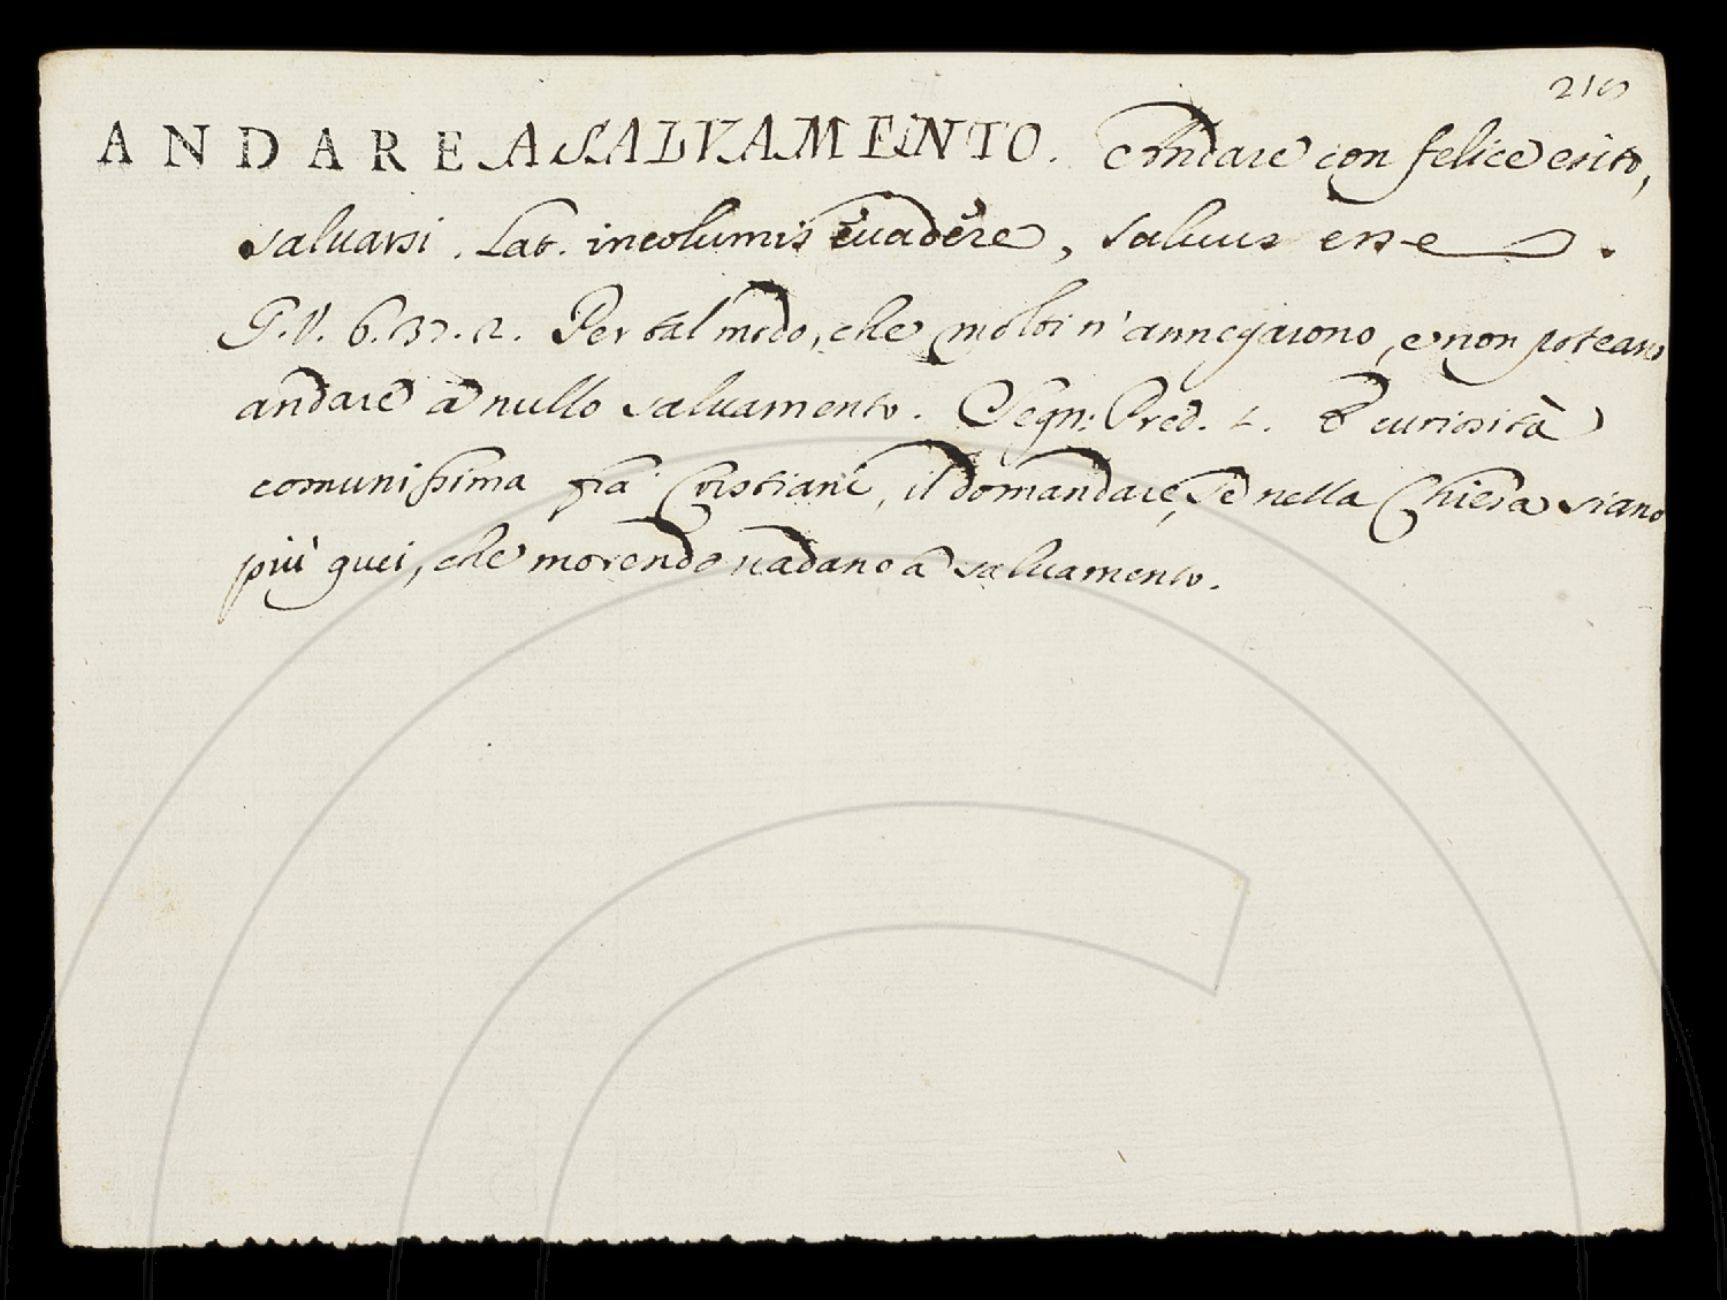 ANDARE A SALVAMENTO. Andare con felice esito,
saluarsi. Lat. incolumis euadere, saluus esse.
G.V. 6. 37. 2. Per tal modo, che molti n'annegarono, e non poteano
andare à nullo saluamento. Segn: Pred. È curiosità
comunissima fra' Cristiani, il domandare, se nella Chiesa siano
più quei, che morendo uadano à saluamento.